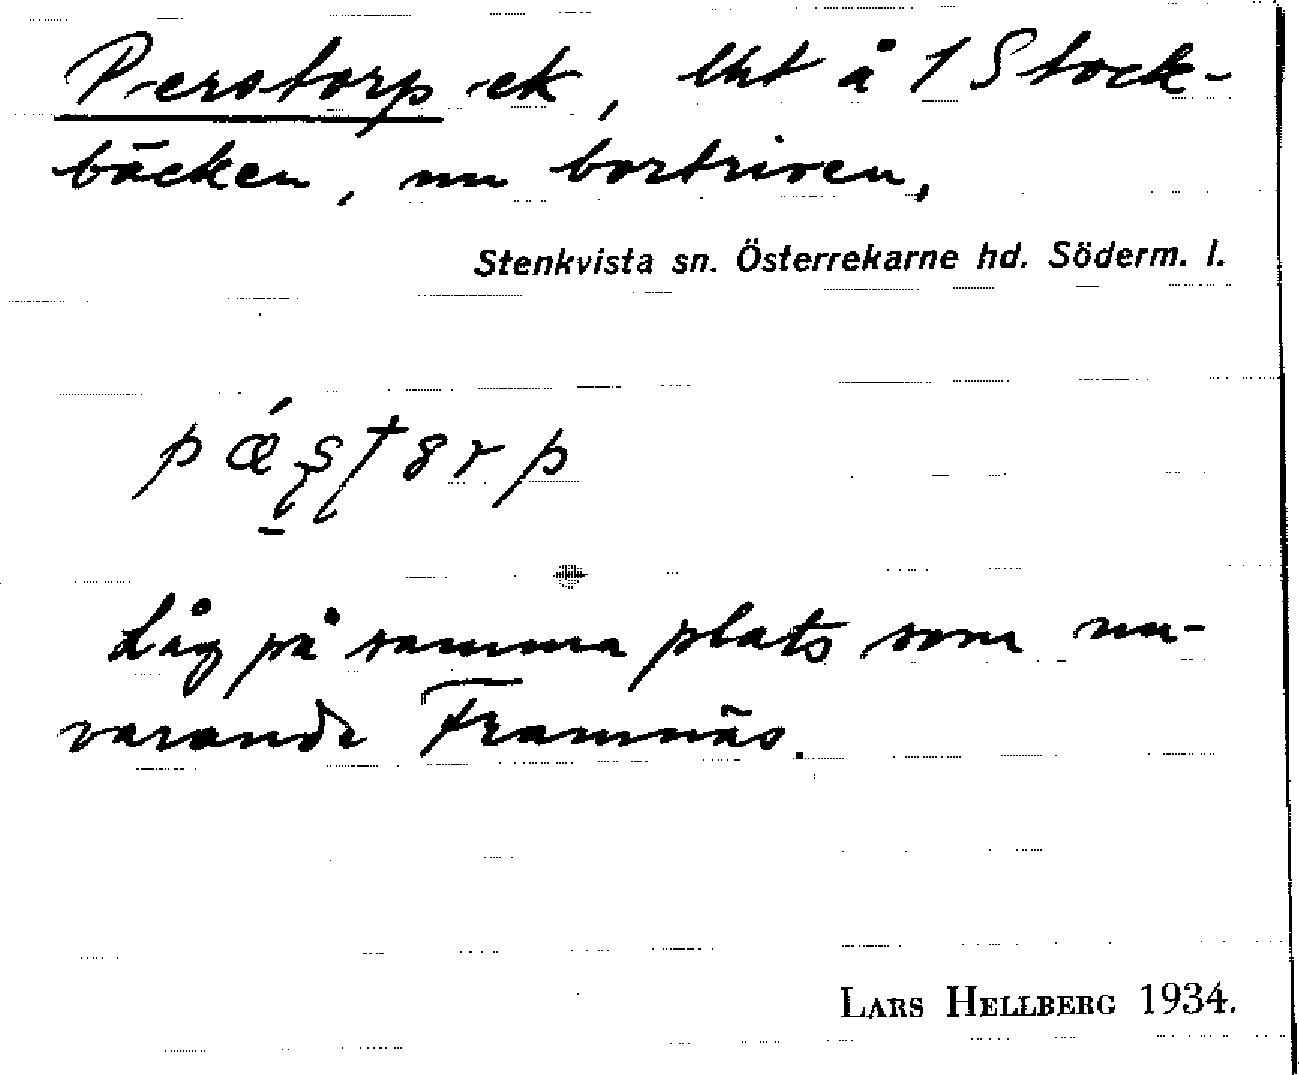 Perstorp ek, lht å 1 Stock-
bäcken, nu bortriven,
Stenkvista sn. Österrekarne hd. Söderm. l.
Låg på samma plats som nu-
varande Framnäs.
LARS HELLBERG 1934.